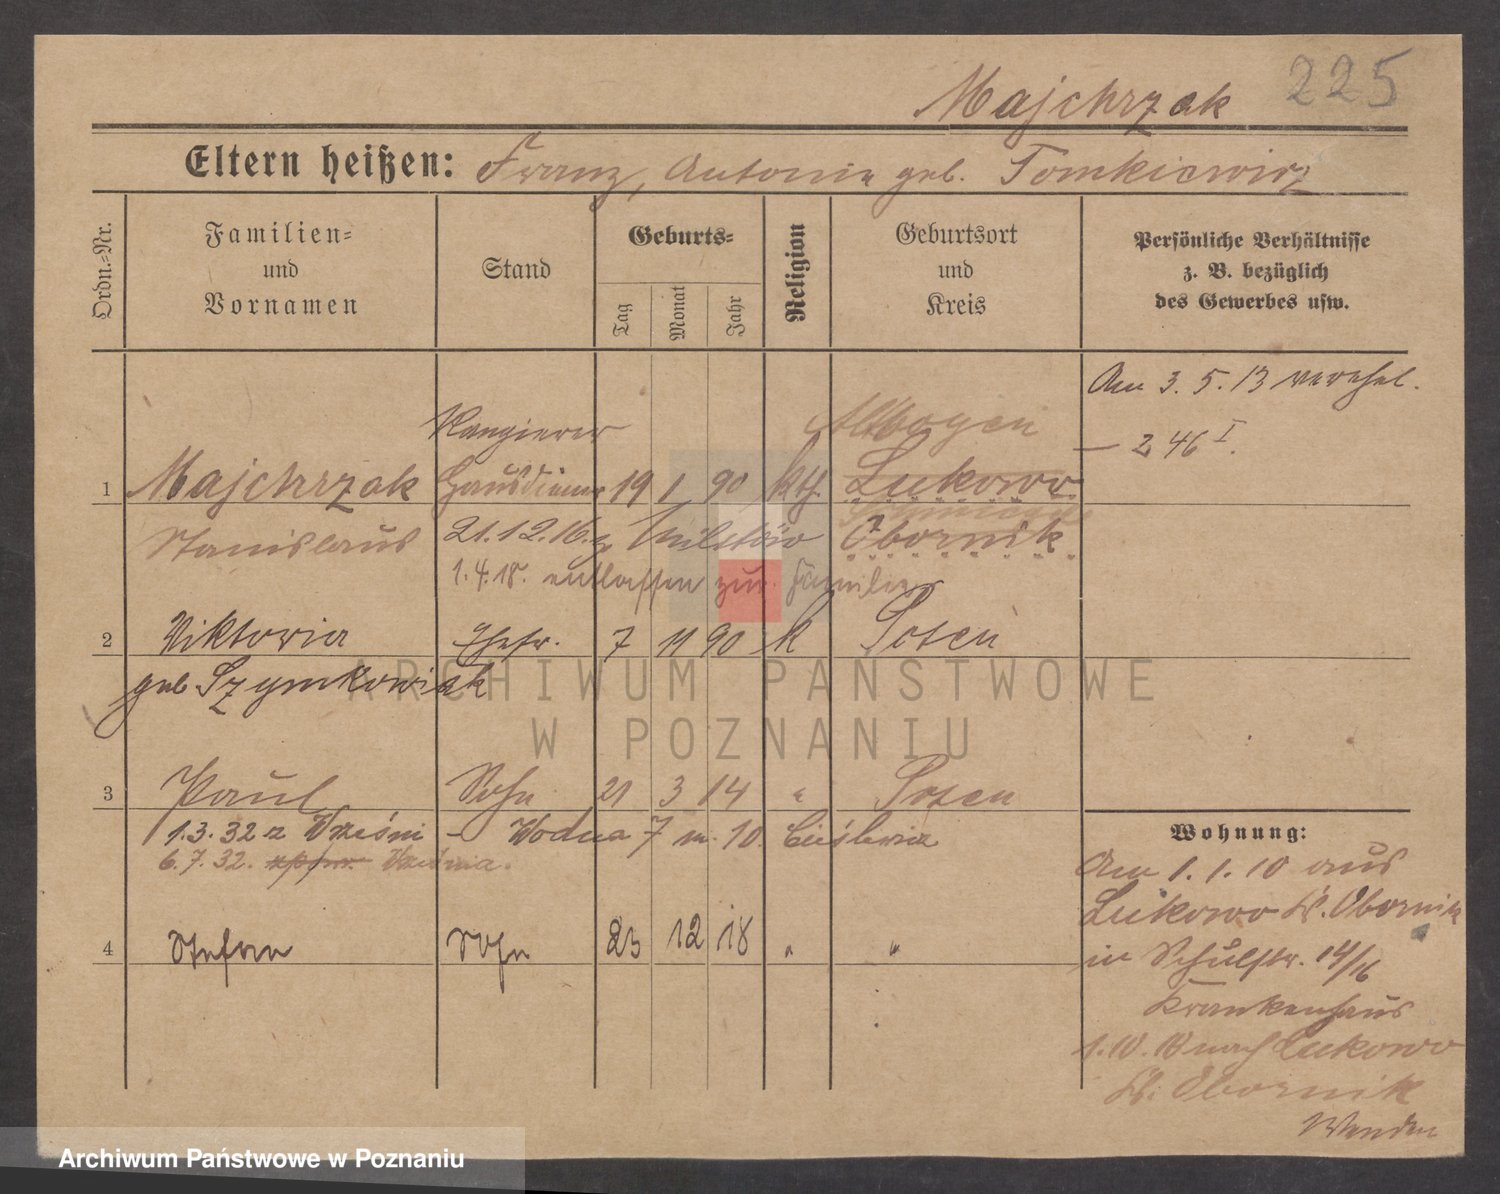 Majchrzak 225
Eltern heißen: Franz, Antonie geb. Tomkiewicz
Ordn.=Nr.
Familien=
und
Vornamen
Stand
Geburts=
Tag
Monat
Jahr
Religion
Geburtsort
und
Kreis
Persönliche Verhältnisse
z. B. bezüglich
des Gewerbes usw.
Am 3. 5. 13 verehel.
— 246 I.
Rangierer
1 Majchrzak Hausdiener 19 1 90 kth. Lukowo
Stanislaus 21.12.16. z. Militär Obornik
1.4.18. entlassen zur Familie
2 Viktoria Ehefr. 7 11 90 k Posen
geb Szymkowiak
3 Paul Sohn 21 3 14 " Posen
1.3.32 z Wrześni – Wodna 7 m. 10.
6.7.32. Września.
4 Stefan Sohn 23 12 18 " "
Wohnung:
Am 1. 1. 10 aus
Lukowo Kr. Obornik
in Schulstr. 14/16
Krankenhaus
1.10.10 nach Lukowo
Kr. Obornik
Wenden
ARCHIWUM PAŃSTWOWE
W POZNANIU
Archiwum Państwowe w Poznaniu